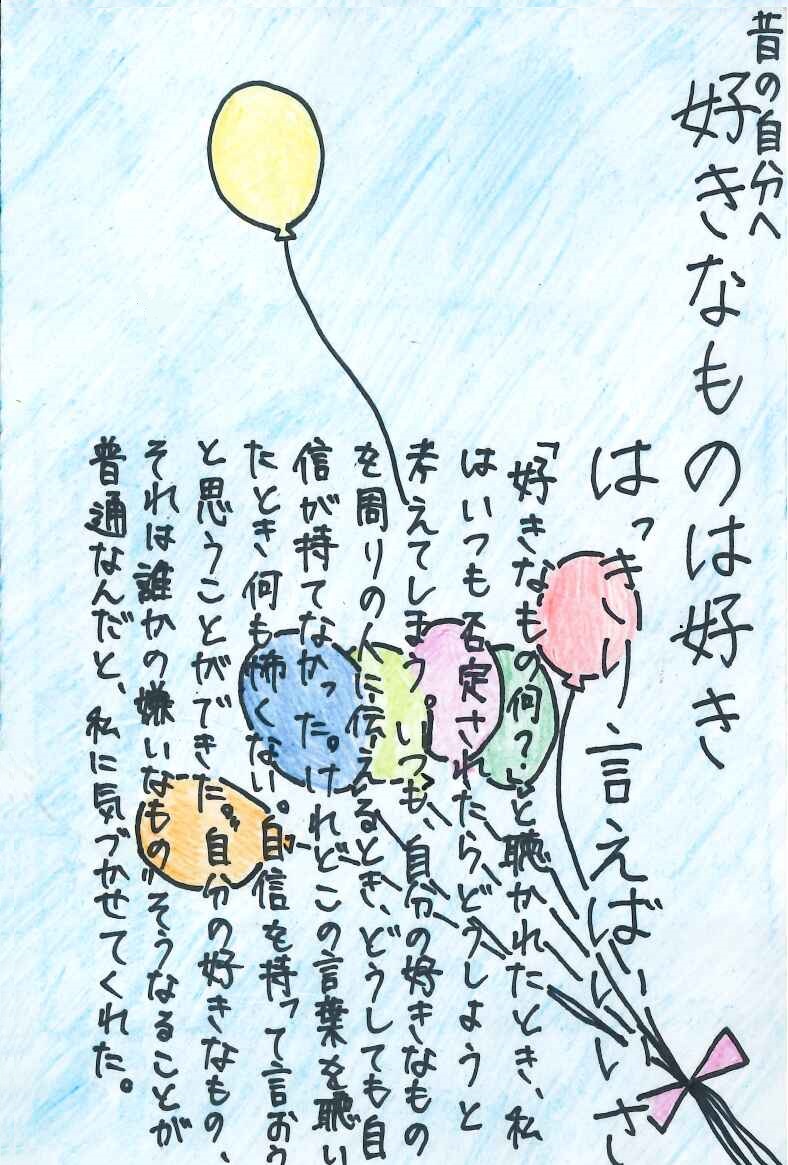 昔の自分へ
好きなものは好き
はっきり言えばいいさ
「好きなもの何？」と聴かれたとき、私
はいつも否定されたらどうしようと
考えてしまう。いつも、自分の好きなもの
を周りの人に伝えるとき、どうしても自
信が持てなかった。けれどこの言葉を聴い
たとき何も怖くない。自信を持って言おう
と思うことができた。"自分の好きなもの、
それは誰かの嫌いなもの"そうなることが
普通なんだと、私に気づかせてくれた。